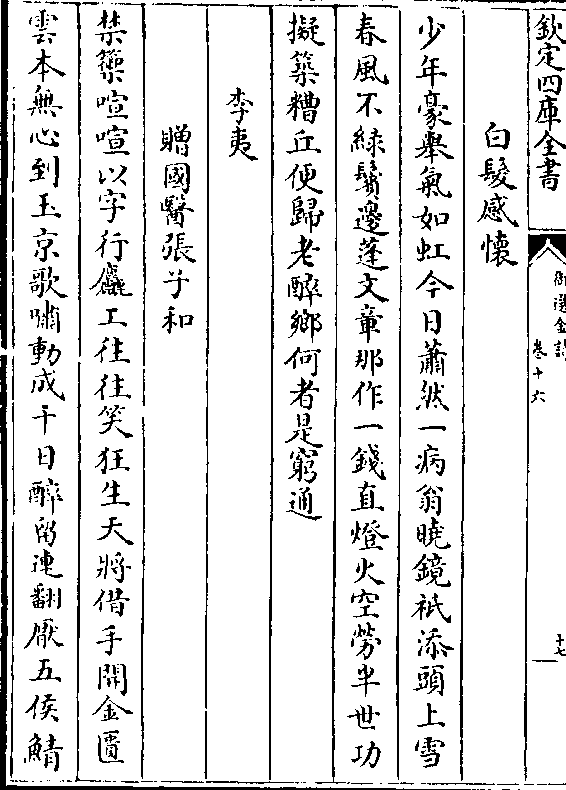 欽定四庫全書
御選金詩
卷十六
十七
白髮感懷
少年豪舉氣如虹今日蕭然一病翁曉鏡祇添頭上雪
春風不綠鬢邊蓬文章那作一錢直燈火空勞半世功
擬築糟丘便歸老醉鄉何者是窮通
李夷
贈國醫張子和
禁籞喧喧以字行麤工往往笑狂生天將借手開金匱
雲本無心到玉京歌嘯動成千日醉留連翻厭五侯鯖